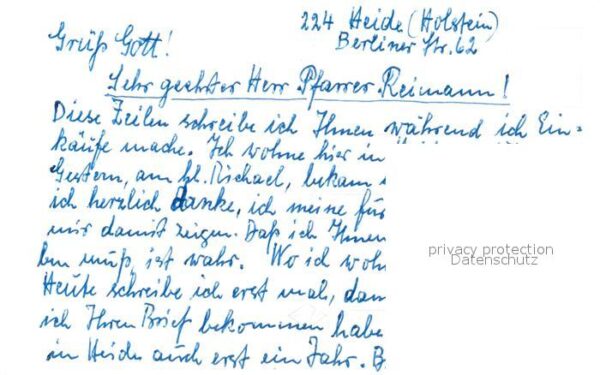 224 Heide (Holstein)
Berliner Str. 62
Grüß Gott!
Sehr geehrter Herr Pfarrer Reimann!
Diese Zeilen schreibe ich Ihnen während ich Ein=
käufe mache. Ich wohne hier in
Gestern, am hl. Michael, bekam
ich herzlich danke, ich meine für
mir damit zeigen. Daß ich Ihnen
ben muß, ist wahr. Wo ich woh
Heute schreibe ich erst mal, dam
ich Ihren Brief bekommen habe
in Heide auch erst ein Jahr. B
privacy protection
Datenschutz